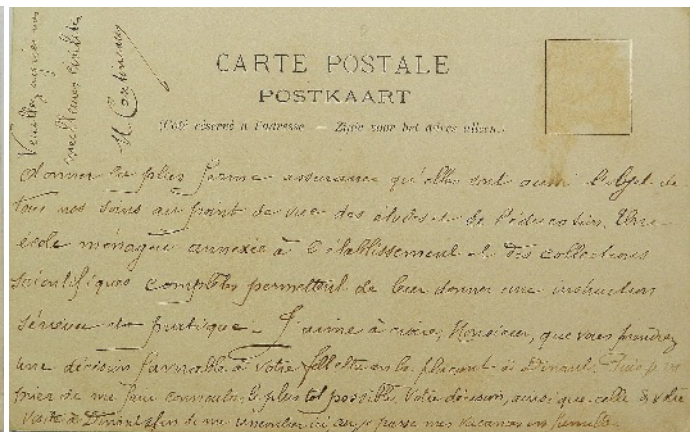 CARTE POSTALE
POSTKAART
Côté réservé à l'adresse — Zijde voor het adres alleen.
donner la plus ferme assurance qu'elles sont aussi l'objet de
tous nos soins au point de vue des études et de l'éducation. Une
école ménagère annexée à l'établissement et des collections
scientifiques complètes permettent de leur donner une instruction
sérieuse et pratique. J'aime à croire, Monsieur, que vous prendrez
une décision favorable à votre fillette en la plaçant à Dinant. Puis-je vous
prier de me faire connaître, le plus tôt possible, votre décision, ainsi que celle de votre
visite à Dinant afin de me rencontrer ici où je passe mes vacances en famille.
Veuillez agréer mes
meilleures civilités